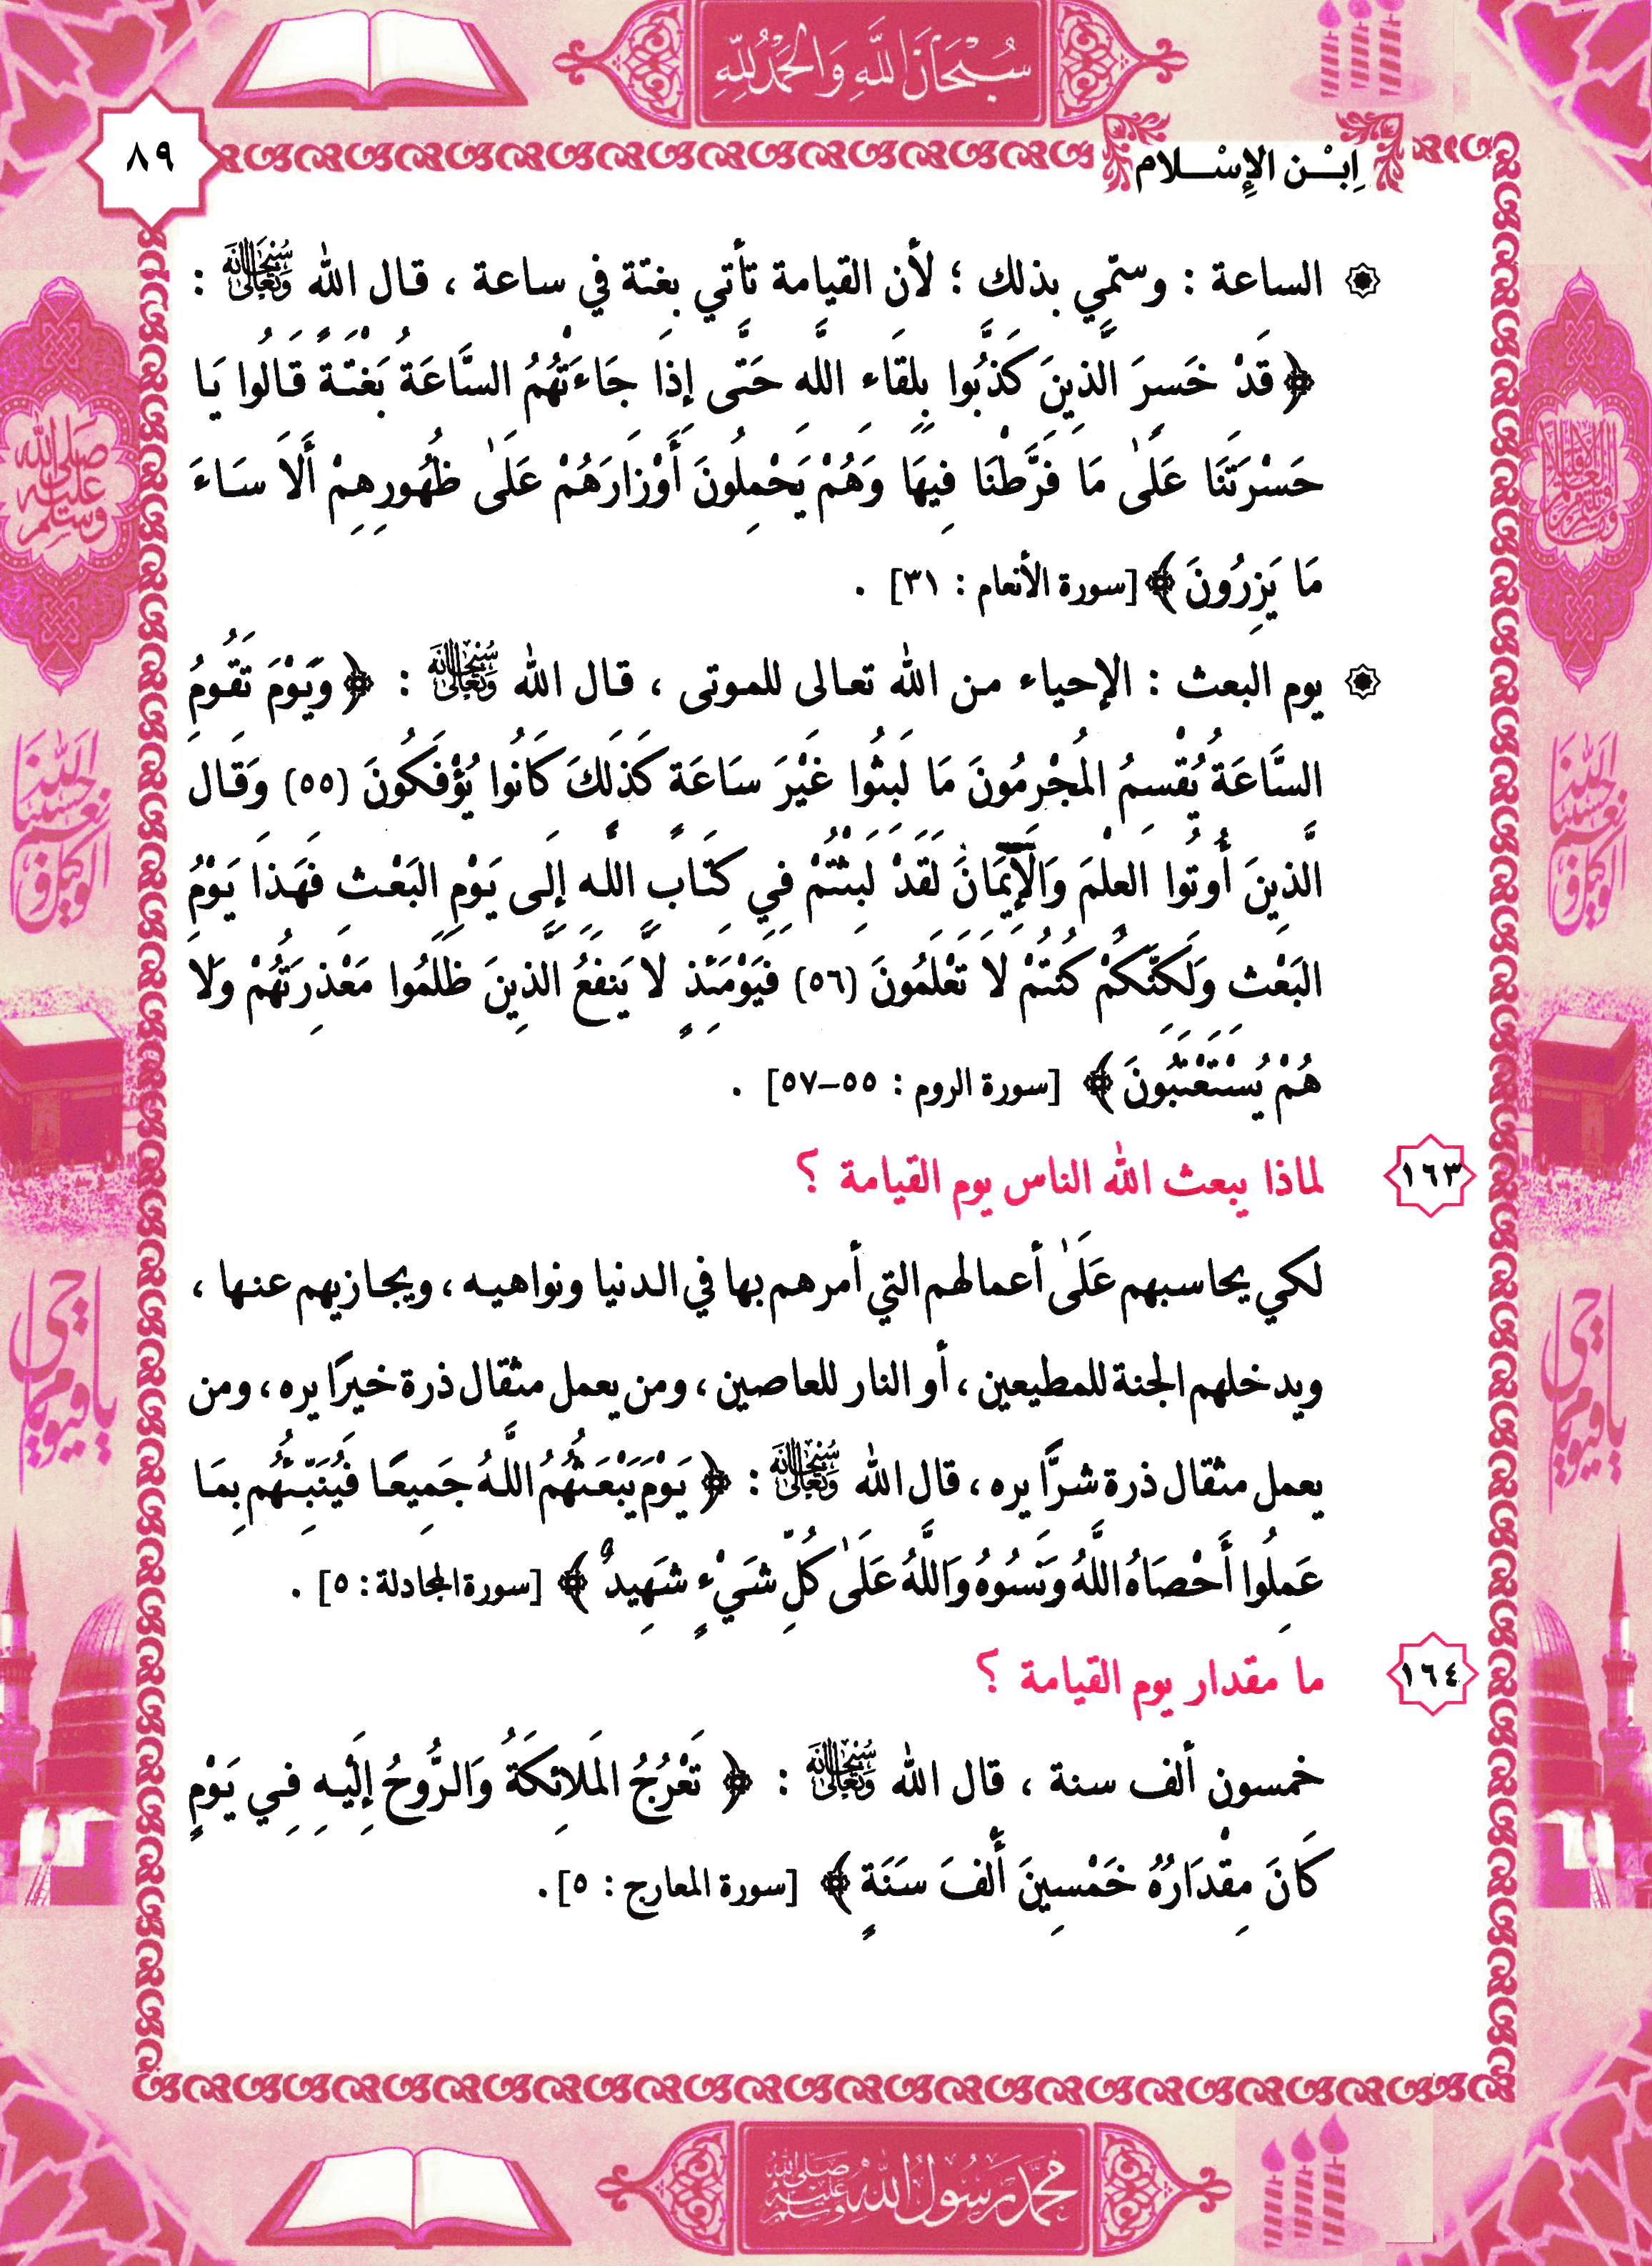 سُبْحَانَ اللَّهِ وَالْحَمْدُ لِلَّهِ
٨٩
اِبْـن الإِسْـلام
الساعة : وسمّي بذلك ؛ لأن القيامة تأتي بغتة في ساعة ، قال الله سُبْحَانَهُ وَتَعَالَىٰ :
﴿ قَدْ خَسِرَ الَّذِينَ كَذَّبُوا بِلِقَاءِ اللَّهِ حَتَّى إِذَا جَاءَتْهُمُ السَّاعَةُ بَغْتَةً قَالُوا يَا
حَسْرَتَنَا عَلَىٰ مَا فَرَّطْنَا فِيهَا وَهُمْ يَحْمِلُونَ أَوْزَارَهُمْ عَلَىٰ ظُهُورِهِمْ أَلَا سَاءَ
مَا يَزِرُونَ ﴾ [سورة الأنعام : ٣١] .
يوم البعث : الإحياء من الله تعالى للموتى ، قال الله سُبْحَانَهُ وَتَعَالَىٰ : ﴿ وَيَوْمَ تَقُومُ
السَّاعَةُ يُقْسِمُ المُجْرِمُونَ مَا لَبِثُوا غَيْرَ سَاعَةٍ كَذَلِكَ كَانُوا يُؤْفَكُونَ (٥٥) وَقَالَ
الَّذِينَ أُوتُوا العِلْمَ وَالإِيمَانَ لَقَدْ لَبِثْتُمْ فِي كِتَابِ اللَّهِ إِلَى يَوْمِ البَعْثِ فَهَذَا يَوْمُ
البَعْثِ وَلَكِنَّكُمْ كُنْتُمْ لَا تَعْلَمُونَ (٥٦) فَيَوْمَئِذٍ لَّا يَنفَعُ الَّذِينَ ظَلَمُوا مَعْذِرَتُهُمْ وَلَا
هُمْ يُسْتَعْتَبُونَ ﴾ [سورة الروم : ٥٥–٥٧] .
١٦٣ لماذا يبعث الله الناس يوم القيامة ؟
لكي يحاسبهم عَلَىٰ أعمالهم التي أمرهم بها في الدنيا ونواهيه ، ويجازيهم عنها ،
ويدخلهم الجنة للمطيعين ، أو النار للعاصين ، ومن يعمل مثقال ذرة خيرًا يره ، ومن
يعمل مثقال ذرة شرًّا يره ، قال الله سُبْحَانَهُ وَتَعَالَىٰ : ﴿ يَوْمَ يَبْعَثُهُمُ اللَّهُ جَمِيعًا فَيُنَبِّئُهُم بِمَا
عَمِلُوا أَحْصَاهُ اللَّهُ وَنَسُوهُ وَاللَّهُ عَلَىٰ كُلِّ شَيْءٍ شَهِيدٌ ﴾ [سورة المجادلة : ٥] .
١٦٤ ما مقدار يوم القيامة ؟
خمسون ألف سنة ، قال الله سُبْحَانَهُ وَتَعَالَىٰ : ﴿ تَعْرُجُ المَلَائِكَةُ وَالرُّوحُ إِلَيْهِ فِي يَوْمٍ
كَانَ مِقْدَارُهُ خَمْسِينَ أَلْفَ سَنَةٍ ﴾ [سورة المعارج : ٥].
محمد رسول الله صلى الله عليه وسلم
صلى الله عليه وسلم
حسبنا الله ونعم الوكيل
حسبنا الله ونعم الوكيل
يا حي يا قيوم
يا حي يا قيوم